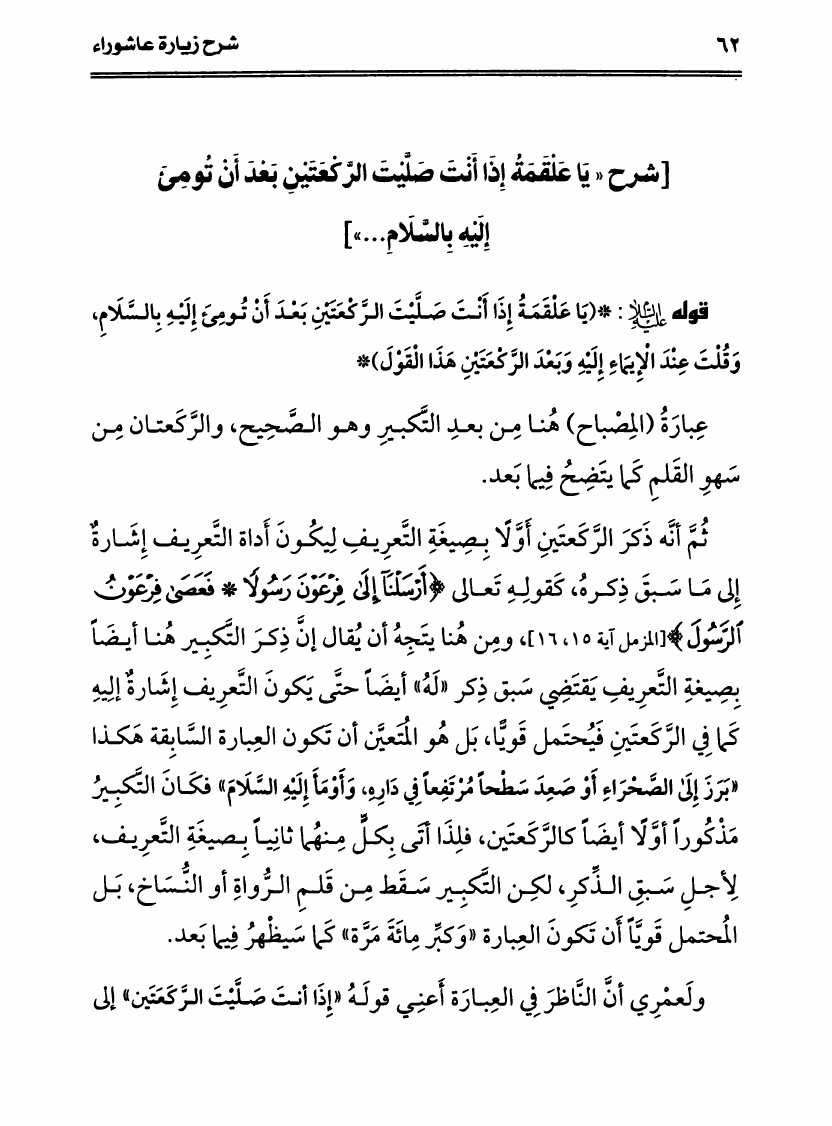 ٦٢ شرح زيارة عاشوراء
[شرح « يَا عَلْقَمَةُ إِذَا أَنْتَ صَلَّيْتَ الرَّكْعَتَيْنِ بَعْدَ أَنْ تُومِئَ
إِلَيْهِ بِالسَّلَامِ...»]
قوله عليه السلام : *(يَا عَلْقَمَةُ إِذَا أَنْتَ صَلَّيْتَ الرَّكْعَتَيْنِ بَعْدَ أَنْ تُومِئَ إِلَيْهِ بِالسَّلَامِ،
وَقُلْتَ عِنْدَ الْإِيمَاءِ إِلَيْهِ وَبَعْدَ الرَّكْعَتَيْنِ هَذَا الْقَوْلَ)*
عِبارَةُ (المِصْباح) هُنا مِن بعدِ التَّكبيرِ وهو الصَّحِيح، والرَّكَعتان مِن
سَهوِ القَلمِ كَما يتَضِحُ فِيما بَعد.
ثُمَّ أنَّه ذَكرَ الرَّكعتَينِ أوَّلًا بِصِيغَةِ التَّعرِيفِ لِيكُونَ أداة التَّعرِيف إشَارةٌ
إلى مَا سَبقَ ذِكرهُ، كَقولِهِ تَعالى ﴿أَرْسَلْنَآ إِلَىٰ فِرْعَوْنَ رَسُولًا * فَعَصَىٰ فِرْعَوْنُ
ٱلرَّسُولَ﴾[المزمل آية ١٥، ١٦]، ومِن هُنا يتَجِهُ أن يُقال إنَّ ذِكرَ التَّكبِيرِ هُنا أيضَاً
بِصِيغةِ التَّعرِيفِ يَقتَضِي سَبق ذِكر «لَهُ» أيضَاً حتَّى يَكونَ التَّعرِيف إشَارةٌ إليهِ
كَما فِي الرَّكعتَينِ فَيُحتَمل قَويًّا، بَل هُو المُتَعيَّن أن تَكون العِبارة السَّابِقة هَكذا
«بَرَزَ إِلَىٰ الصَّحْرَاءِ أَوْ صَعِدَ سَطْحاً مُرْتَفِعاً فِي دَارِهِ، وَأَوْمَأَ إِلَيْهِ السَّلَامَ» فكَانَ التَّكبِيرُ
مَذْكُوراً أوَّلًا أيضَاً كالرَّكعتَين، فلِذَا أتَى بِكلٍّ مِنهُما ثانِياً بِصيغَةِ التَّعرِيف،
لِأجلِ سَبقِ الذِّكرِ، لكِن التَّكبِير سَقَط مِن قَلمِ الرُّواةِ أو النُّسَاخ، بَل
المُحتمل قَويَّاً أن تَكونَ العِبارة «وَكبِّر مِائَةَ مَرَّة» كَما سَيظْهرُ فِيما بَعد.
ولَعمْرِي أنَّ النَّاظرَ فِي العِبارَة أَعنِي قولَهُ «إِذَا أنتَ صَلَّيْتَ الرَّكعَتَين» إلى